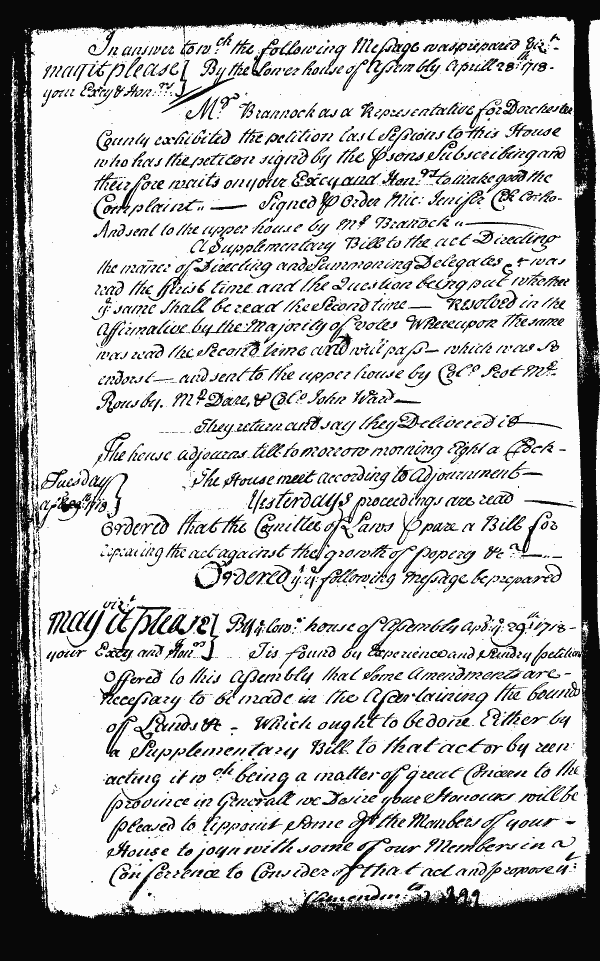 In answer to wch the following Message was prepared Vizt
may it please By the Lower house of Assembly Aprill 28th 1718-
your Excy & Honrs
Mr Brannock as a Representative for Dorchester
County exhibited the petition last Sessions to this House
who has the peticon signd by the psons Subscribing and
therefore waits on your Excy and Honrs to make good the
Complaint.. — Signed p Order Mic: Jenifer Clk
And sent to the upper house by Mr Branock..—
A Supplementary Bill to the act Directing
the manner of Directing and Summoning Delegates & was
read the first time and the Question being put whether
ye same shall be read the Second time — Resolved in the
affirmative by the Majority of votes Whereupon the same
was read the Second time and will pass — which was so
endorst — and sent to the upper house by Colo Scot Mr
Rousby. Mr Dare, & Colo John Ward —
They return and say they Delivered it —
The house adjourns till to morrow morning Eight a Clock -
Tuesday The House meet according to Adjournment —
1718 Yesterdays proceedings are read —
Ordered that the Comittee of Laws ppare a Bill for
repealing the act against the growth of popery &ca —
Ordered yt ye following Message be prepared
vizt
may it please By ye Lowr house of Assembly Apr: ye 29th 1718-
your Excy and Honrs Tis found by Experience and Sundry petitions
Offered to this Assembly that some Amendments are
necessary to be made in the Ascertaining the bounds
of Lands &c - Which ought to be done Either by
a Supplementary Bill to that act or by reen
acting it wch being a matter of great Concern to the
province in Generall we Desire your Honours will be
pleased to Appoint Some of the Members of your -
House to joyn with some of our Members in a
Conferrence to Consider of that act and propose ye
Amendmts 299